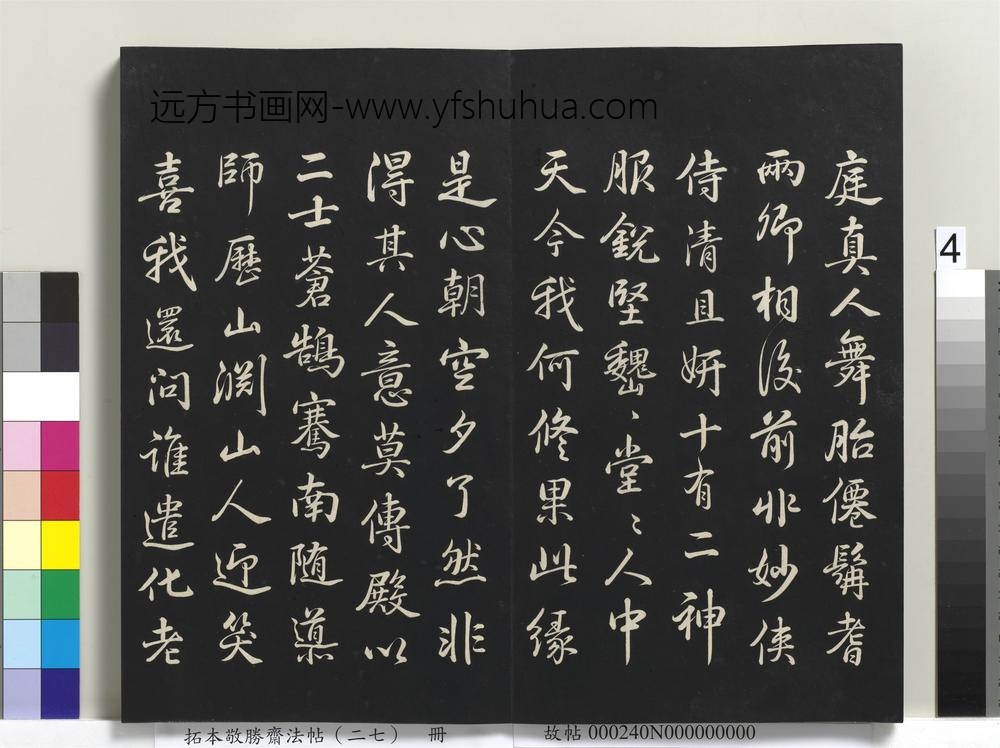 远方书画网-www.yfshuhua.com
庭真人舞胎僊髯耆
兩卿相後前丱妙俠
侍清且妍十有二神
服銳堅巍々堂々人中
天今我何修果此緣
是心朝空夕了然非
得其人意莫傳殿以
二士蒼鵠騫南随道
師歷山淵山人迎笑
喜我還問誰遣化老
4
拓本敬勝齋法帖（二七） 冊
故帖 000240N000000000